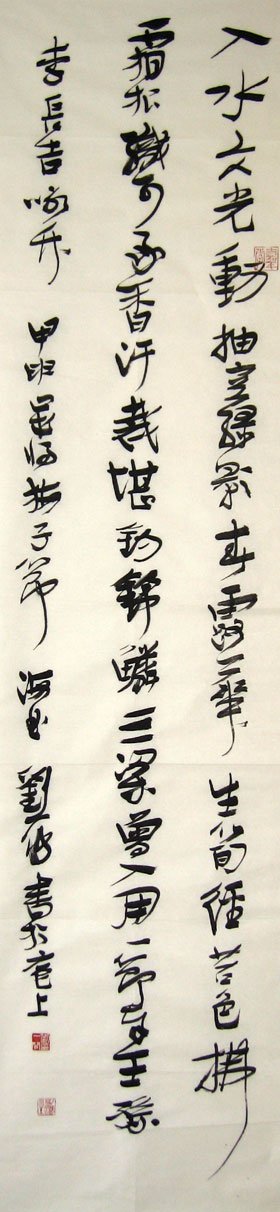 入水文光動抽空綠影春露華生筍徑苔色拂
霜根織可承香汗裁堪釣錦鱗三梁曾入用一節奉王孫
李長吉咏竹 甲申 子 劉 書於 上